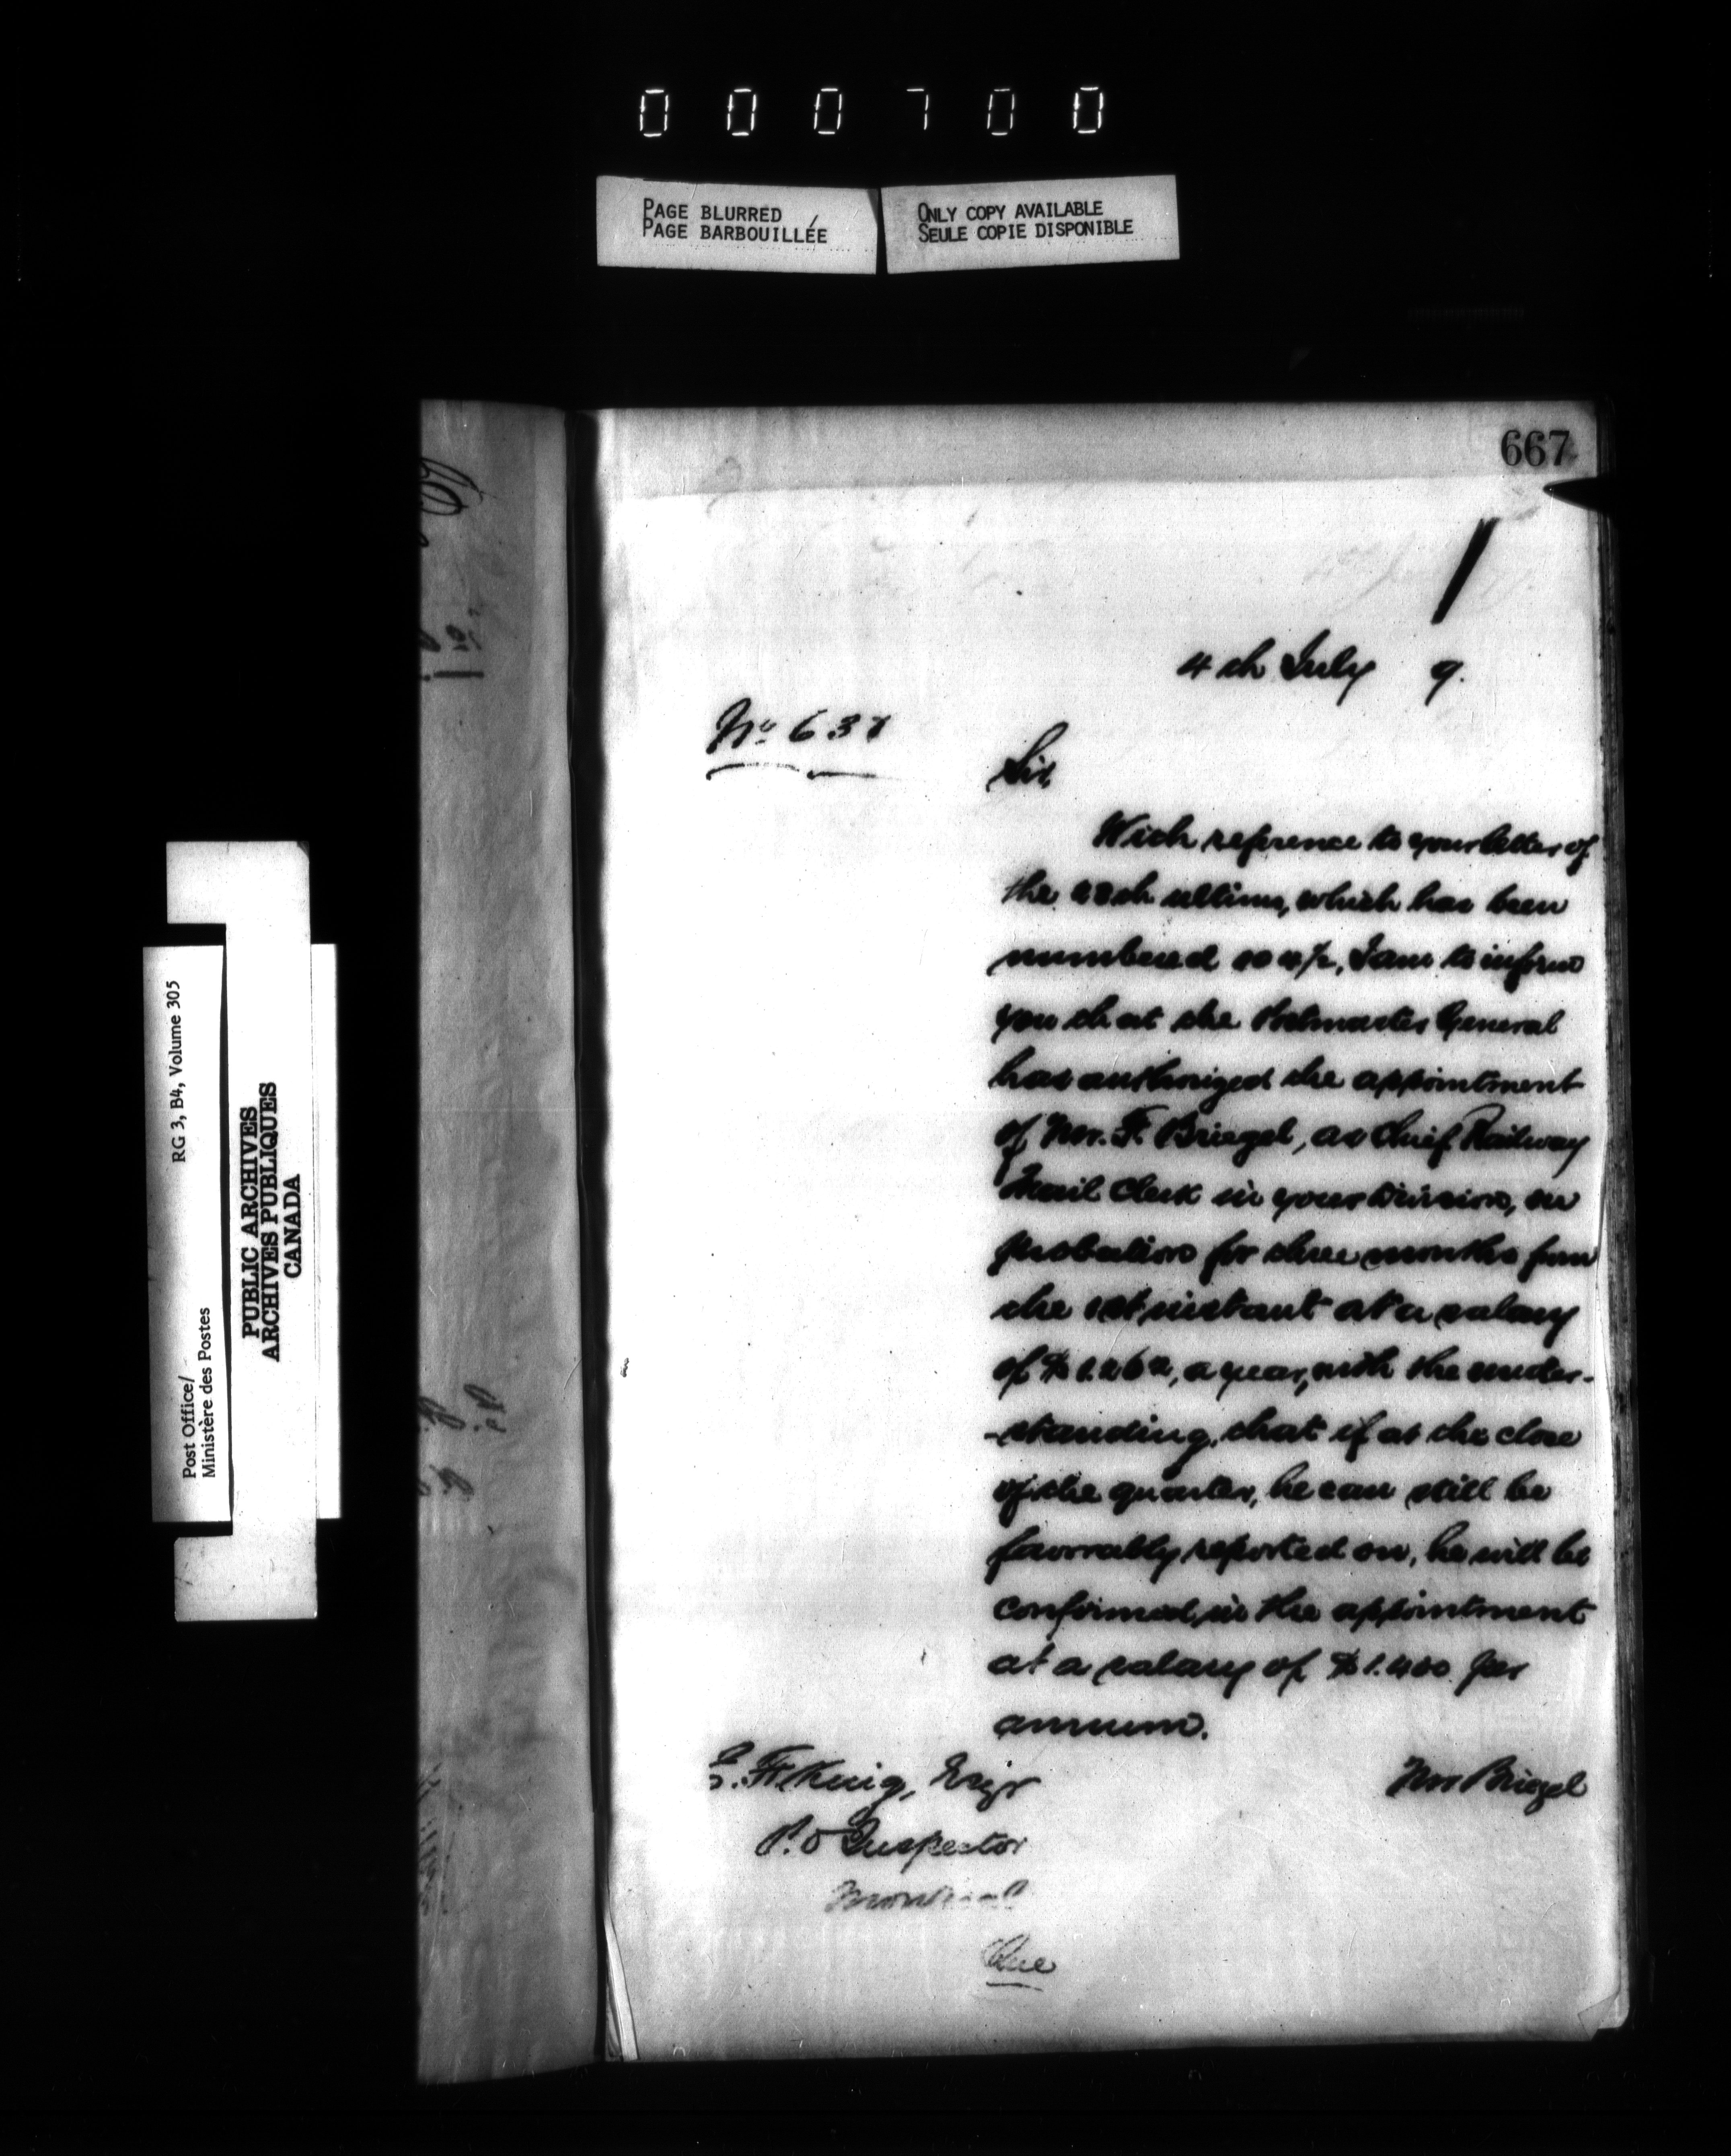 000700
PAGE BLURRED
PAGE BARBOUILLÉE
ONLY COPY AVAILABLE
SEULE COPIE DISPONIBLE
667
4th July 9.
No 637
Sir,
With reference to your letter of
the 28th ultimo, which has been
numbered I am to inform
you that the Postmaster General
has authorized the appointment
of Mr. F. Briegel, as Chief Railway
Mail Clerk in your Division, on
probation for three months from
the 1st instant at a salary
of a year, with the under-
-standing, that if at the close
of the quarter, he can still be
favorably reported on, he will be
confirmed, in the appointment
at a salary of $1.400 per
annum.
Mr Briegel
E. F. King, Esqr
P. O Inspector
Montreal
Que
RG 3, B4, Volume 305
Post Office/
Ministère des Postes
PUBLIC ARCHIVES
ARCHIVES PUBLIQUES
CANADA